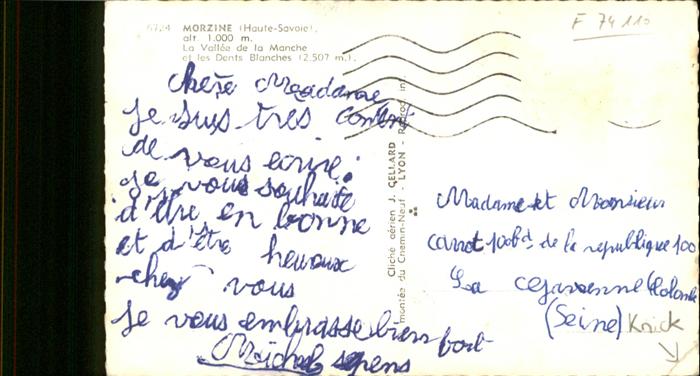 6724 MORZINE (Haute-Savoie),
alt. 1.000 m.
La Vallée de la Manche
et les Dents Blanches (2.507 m.)
F 74 110
chère Maedame
Je suis très content
de vous ecrire.
Je vous souhaite
d'être en bonne
et d'être heureux
chez vous
Je vous embrasse bien fort
Michel
Cliche aérien J. CELLARD
montée du Chemin-Neuf - LYON - Reprod. in
Madame et Monsieur
carrot 100 bd de la republique 100
La garenne Colombe
(Seine)